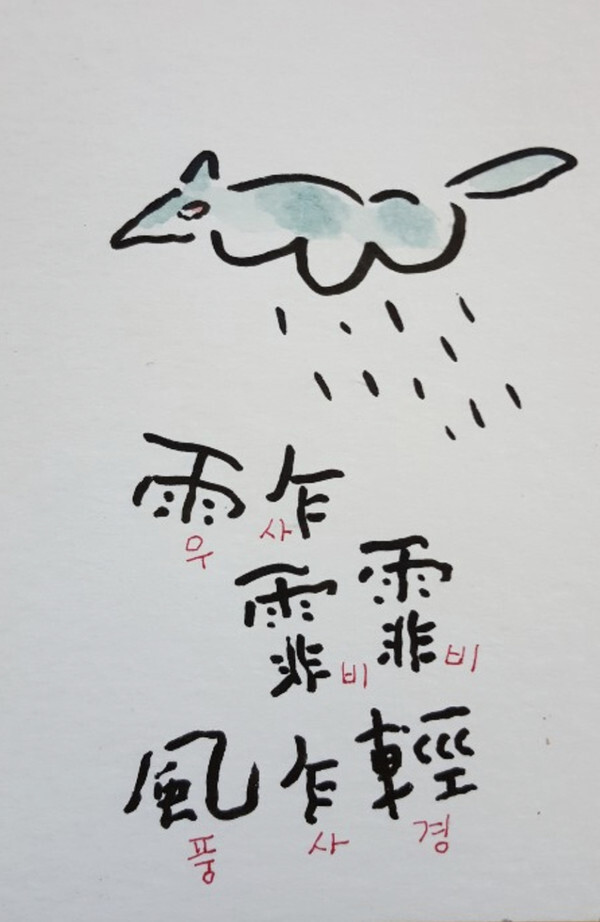 雨乍
우 사
霏霏
비 비
風乍輕
풍 사 경